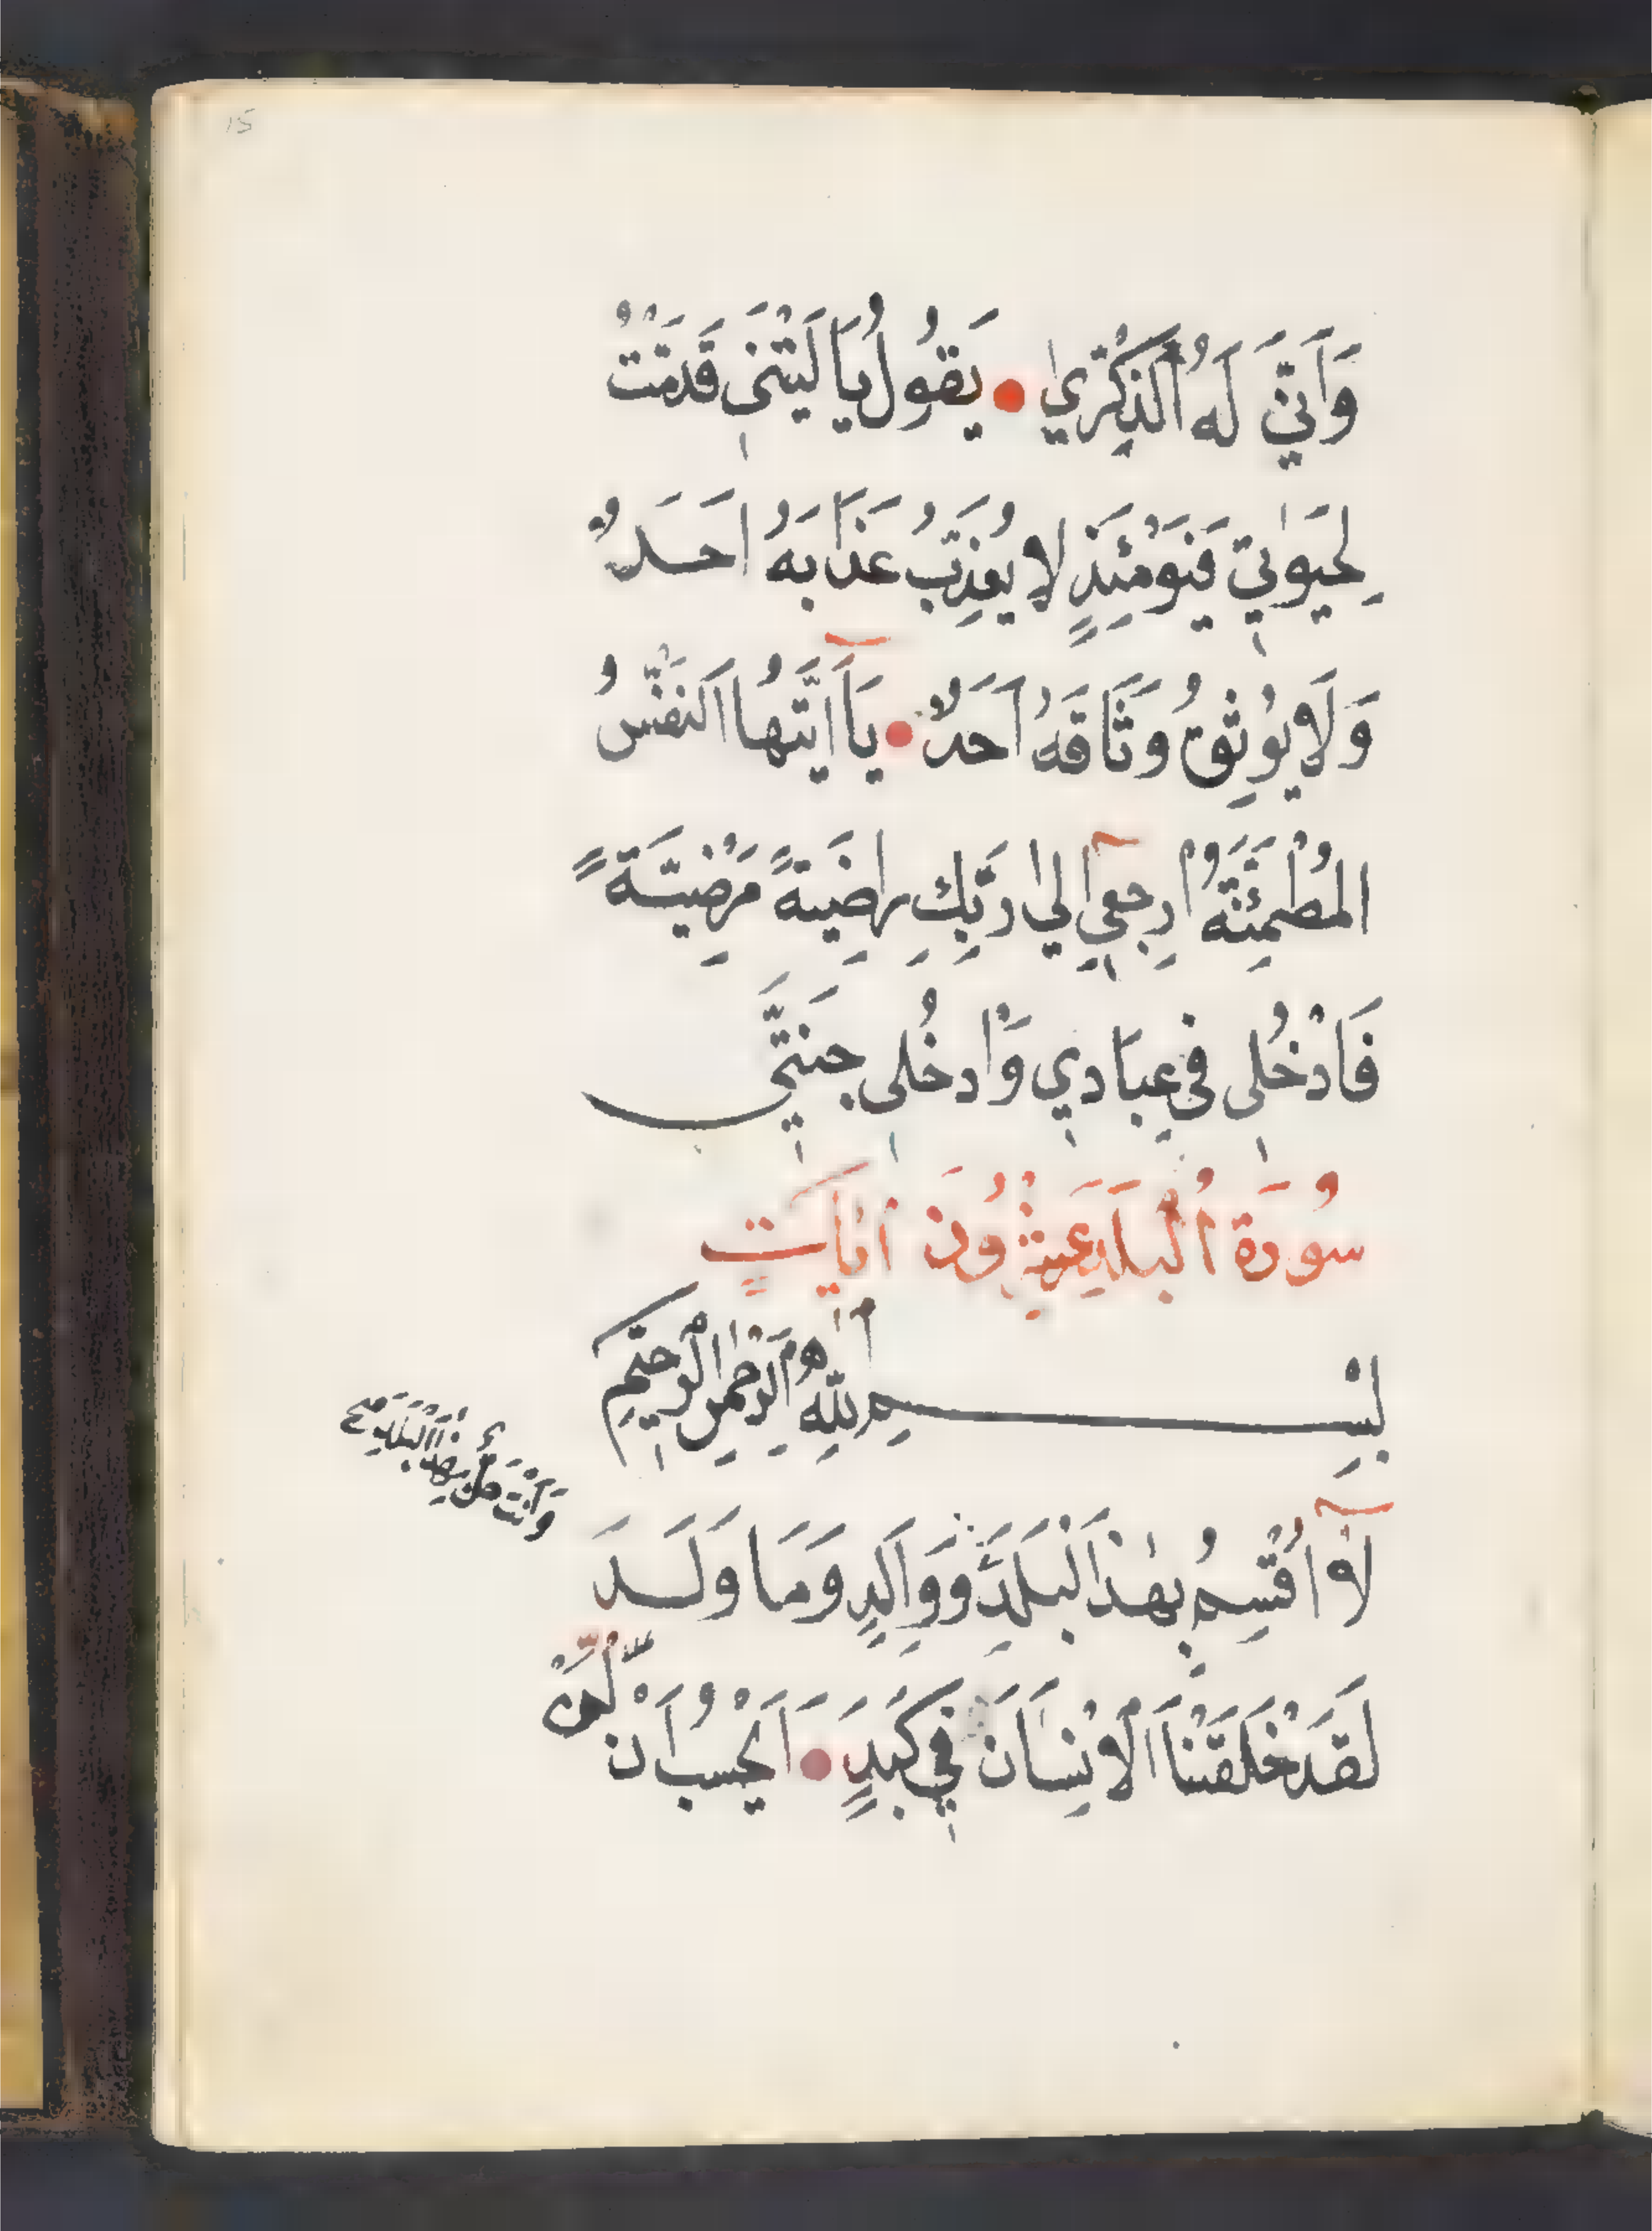 15
وَاَنّيَ لَهُ الذِّكْرٰي يَقُولُ يَا لَيْتَنِي قَدَّمْتُ
لِحَيَوٰتِي فَيَوْمَئِذٍ لا يُعَذِّبُ عَذَابَهُ اَحَدٌ
وَلَا يُوثِقُ وَثَاقَهُ اَحَدٌ يَآاَيَّتُهَا النَفْسُ
المُطْمَئِنَّةُ ارجِعِي الٰي رَبِّكِ رَاضِيَةً مَرْضِيَّةً
فَادْخُلِي فِي عِبَادِي وَادْخُلِي جَنَّتِي
سُورَة الْبَلَدِ عِشْرُونَ اٰيَاتٍ
بِسْــمِ اللّٰهِ الرَّحْمٰنِ الرَّحِيْمِ
وَاَنْتَ حِلٌّ بِهٰذَا الْبَلَدِ صح
لآ اُقْسِمُ بِهٰذَا الْبَلَدِ وَوَالِدٍ وَمَا وَلَدَ
لَقَدْ خَلَقْنَا الْاِنْسَانَ فِي كَبَدٍ اَيَحْسَبُ اَنْ لَّنْ